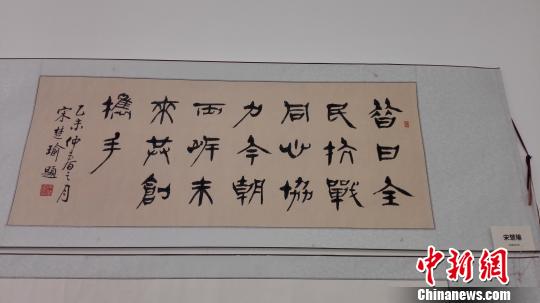 昔日全
民抗戰
同心協
力今朝
兩岸未
來共創
攜手
乙未仲春之月
宋楚瑜題
宋楚瑜
中新网
Chinanews.com